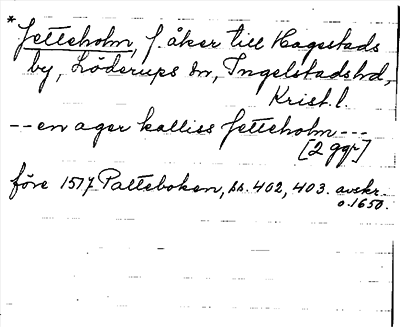 *Jetteholm, f. åker till Hagestads
by, Löderups sn, Ingelstads hd,
Krist. l.
-- en ager kalliss Jetteholm ---
[2 ggr]
före 1517 Palteboken, ss. 402, 403. avskr.
o. 1650.